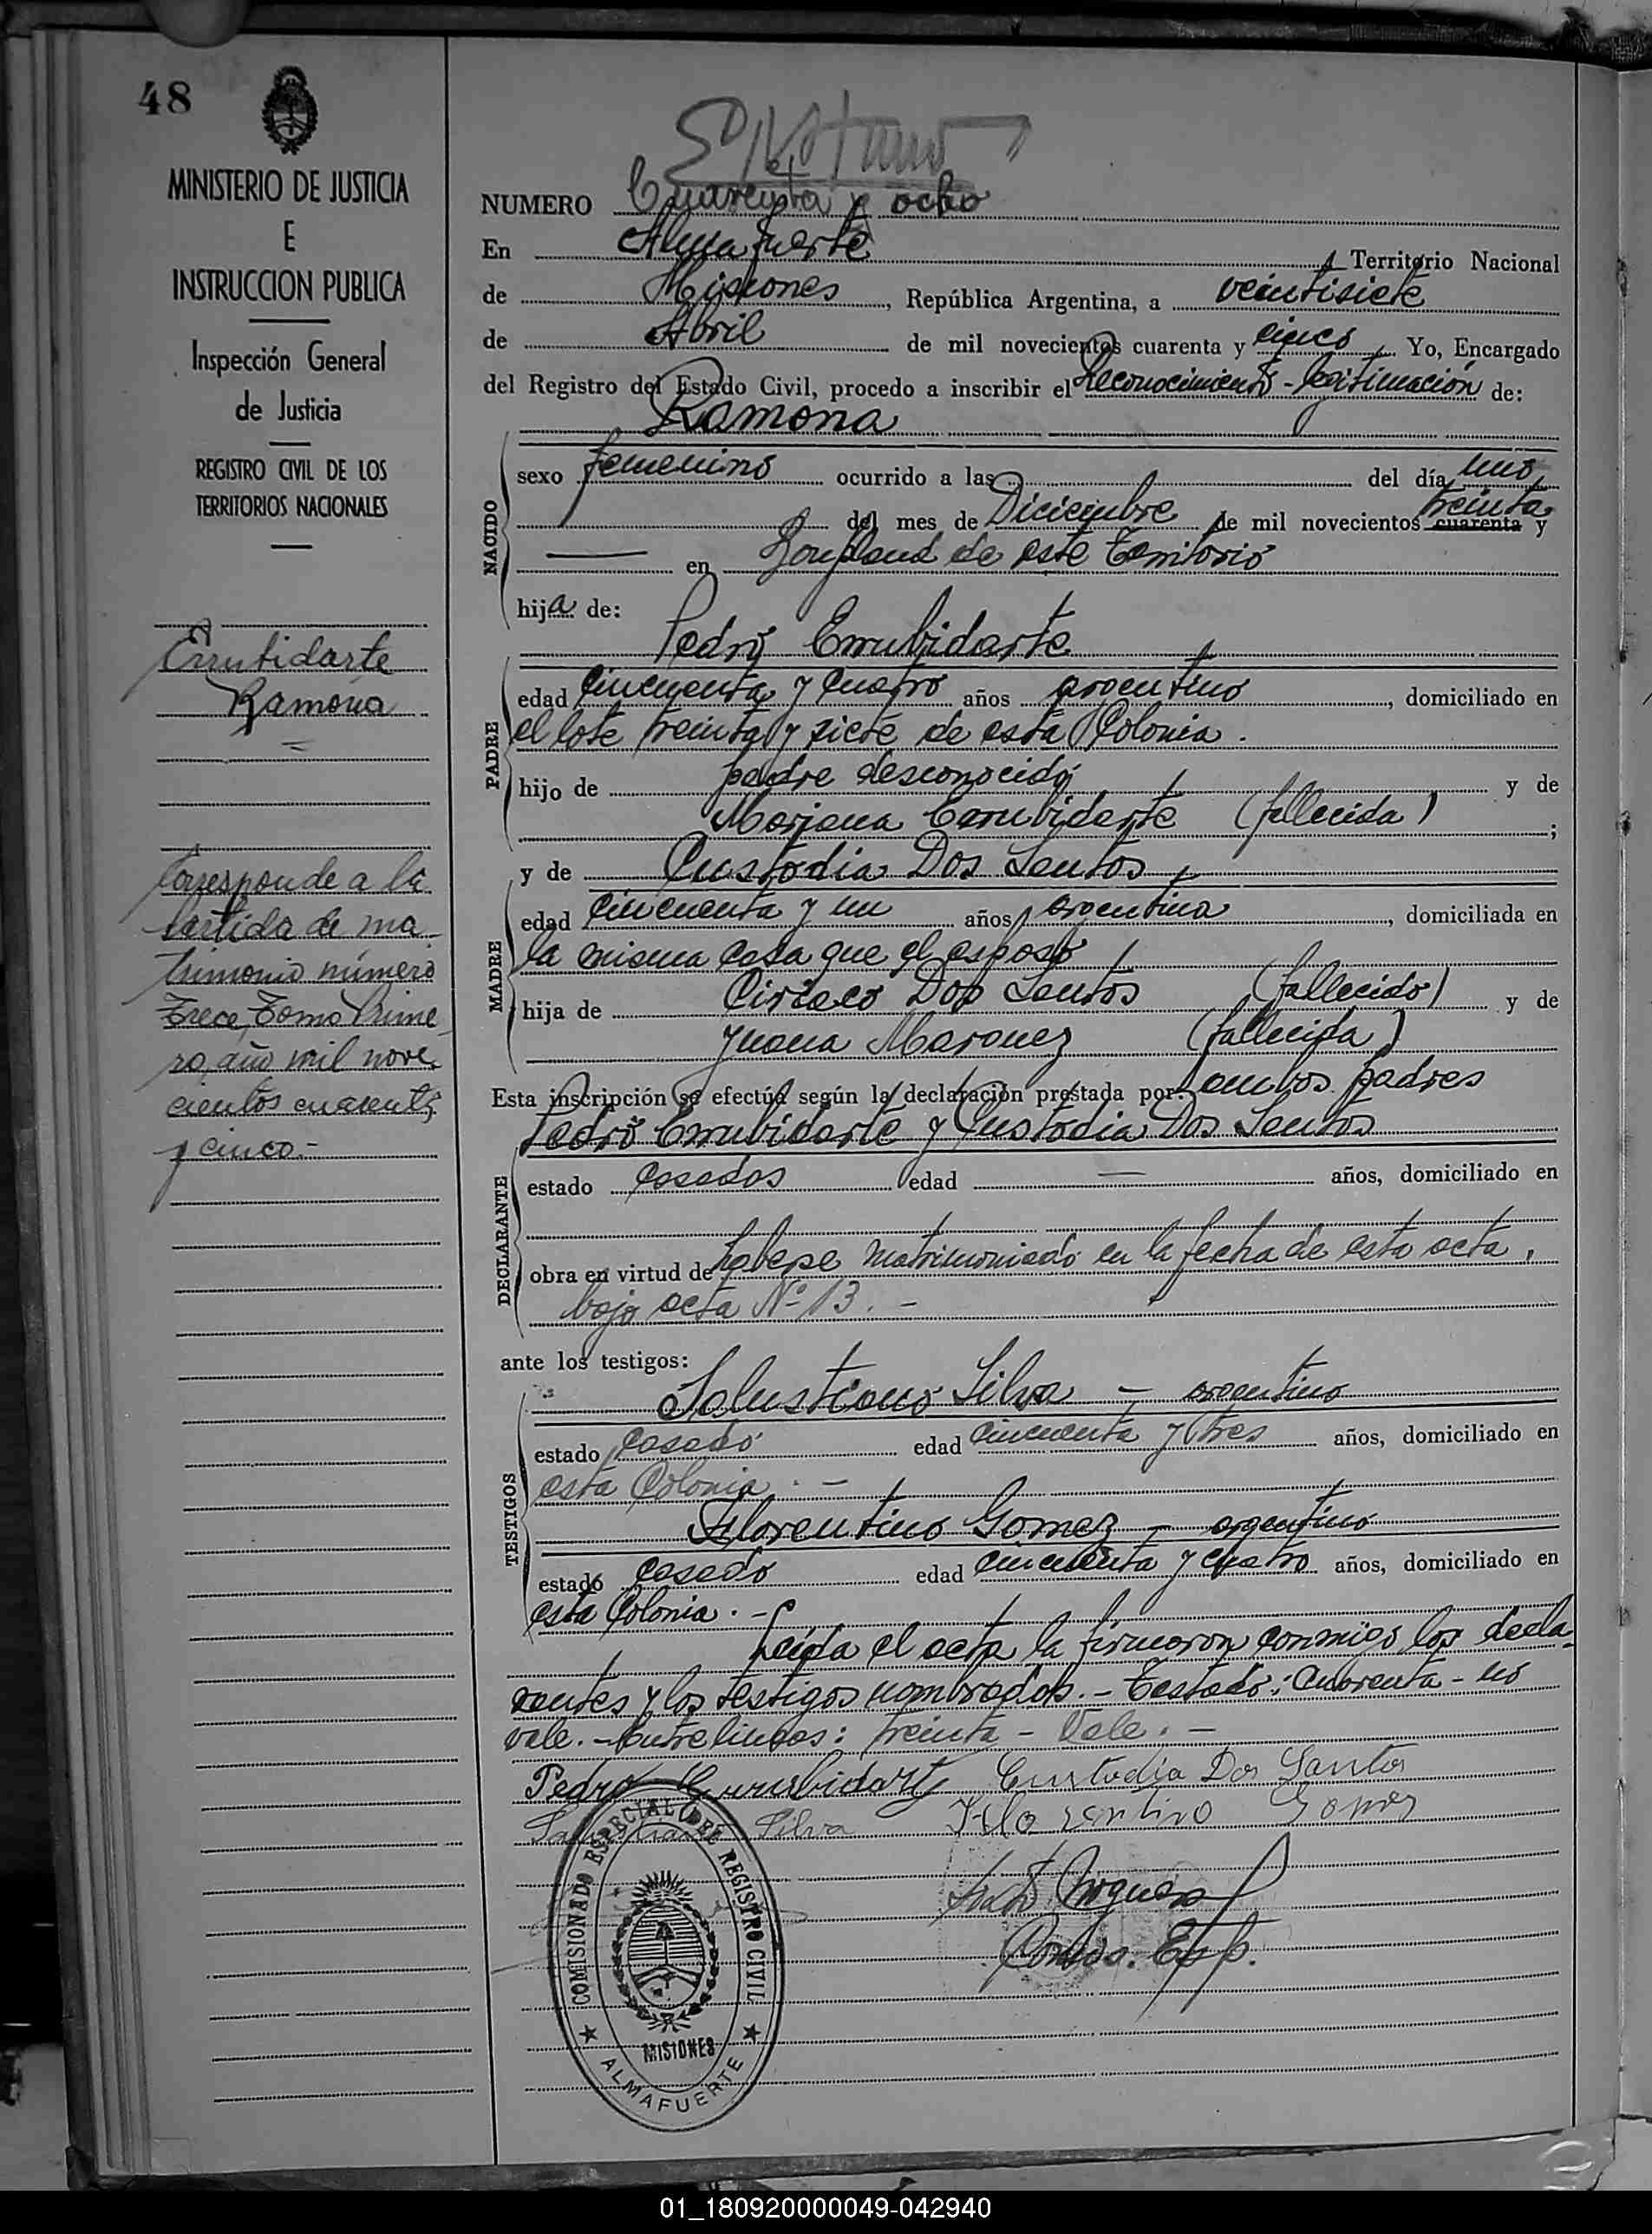 48
MINISTERIO DE JUSTICIA
E
INSTRUCCION PUBLICA
Inspección General
de Justicia
REGISTRO CIVIL DE LOS
TERRITORIOS NACIONALES
Errubidarte
Ramona
Corresponde a la
Partida de ma-
trimonio número
Trece, Tomo Prime
ro, año mil nove
cientos cuarenta
y cinco.-
NUMERO Cuarenta y ocho
En Almafuerte Territorio Nacional
de Misiones, República Argentina, a veintisiete
de Abril de mil novecientos cuarenta y cinco Yo, Encargado
del Registro del Estado Civil, procedo a inscribir el Reconocimiento - Legitimación de:
Ramona
NACIDO
sexo femenino ocurrido a las del día uno
treinta
del mes de Diciembre de mil novecientos cuarenta y
— en Bonpland de este Territorio
hija de:
Pedro Errubidarte
PADRE
edad cincuenta y cuatro años argentino, domiciliado en
el lote treinta y siete de esta Colonia.
hijo de padre desconocido y de
Mariana Errubidarte (fallecida);
y de Custodia Dos Santos
MADRE
edad cincuenta y un años argentina, domiciliada en
la misma casa que el esposo
hija de Ciriaco Dos Santos (fallecido) y de
Juana Marquez (fallecida)
Esta inscripción se efectúa según la declaración prestada por: ambos padres
Pedro Errubidarte y Custodia Dos Santos
DECLARANTE
estado casados edad — años, domiciliado en
obra en virtud de haberse matrimoniado en la fecha de esta acta,
bajo acta Nº 13. -
ante los testigos:
TESTIGOS
Salustiano Silva - argentino
estado casado edad cincuenta y tres años, domiciliado en
esta Colonia. -
Florentino Gomez - argentino
estado casado edad cincuenta y cuatro años, domiciliado en
esta Colonia. -
Leida el acta la firmaron conmigo los decla-
rantes y los testigos nombrados. - Testado: cuarenta - no
vale. - Entre lineas: treinta - Vale. -
Pedro Errubidarte Custodia Dos Santos
Salustiano Silva Florentino Gomez
Comdo. Esp.
COMISIONADO ESPECIAL DEL REGISTRO CIVIL
MISIONES
ALMAFUERTE
01_180920000049-042940